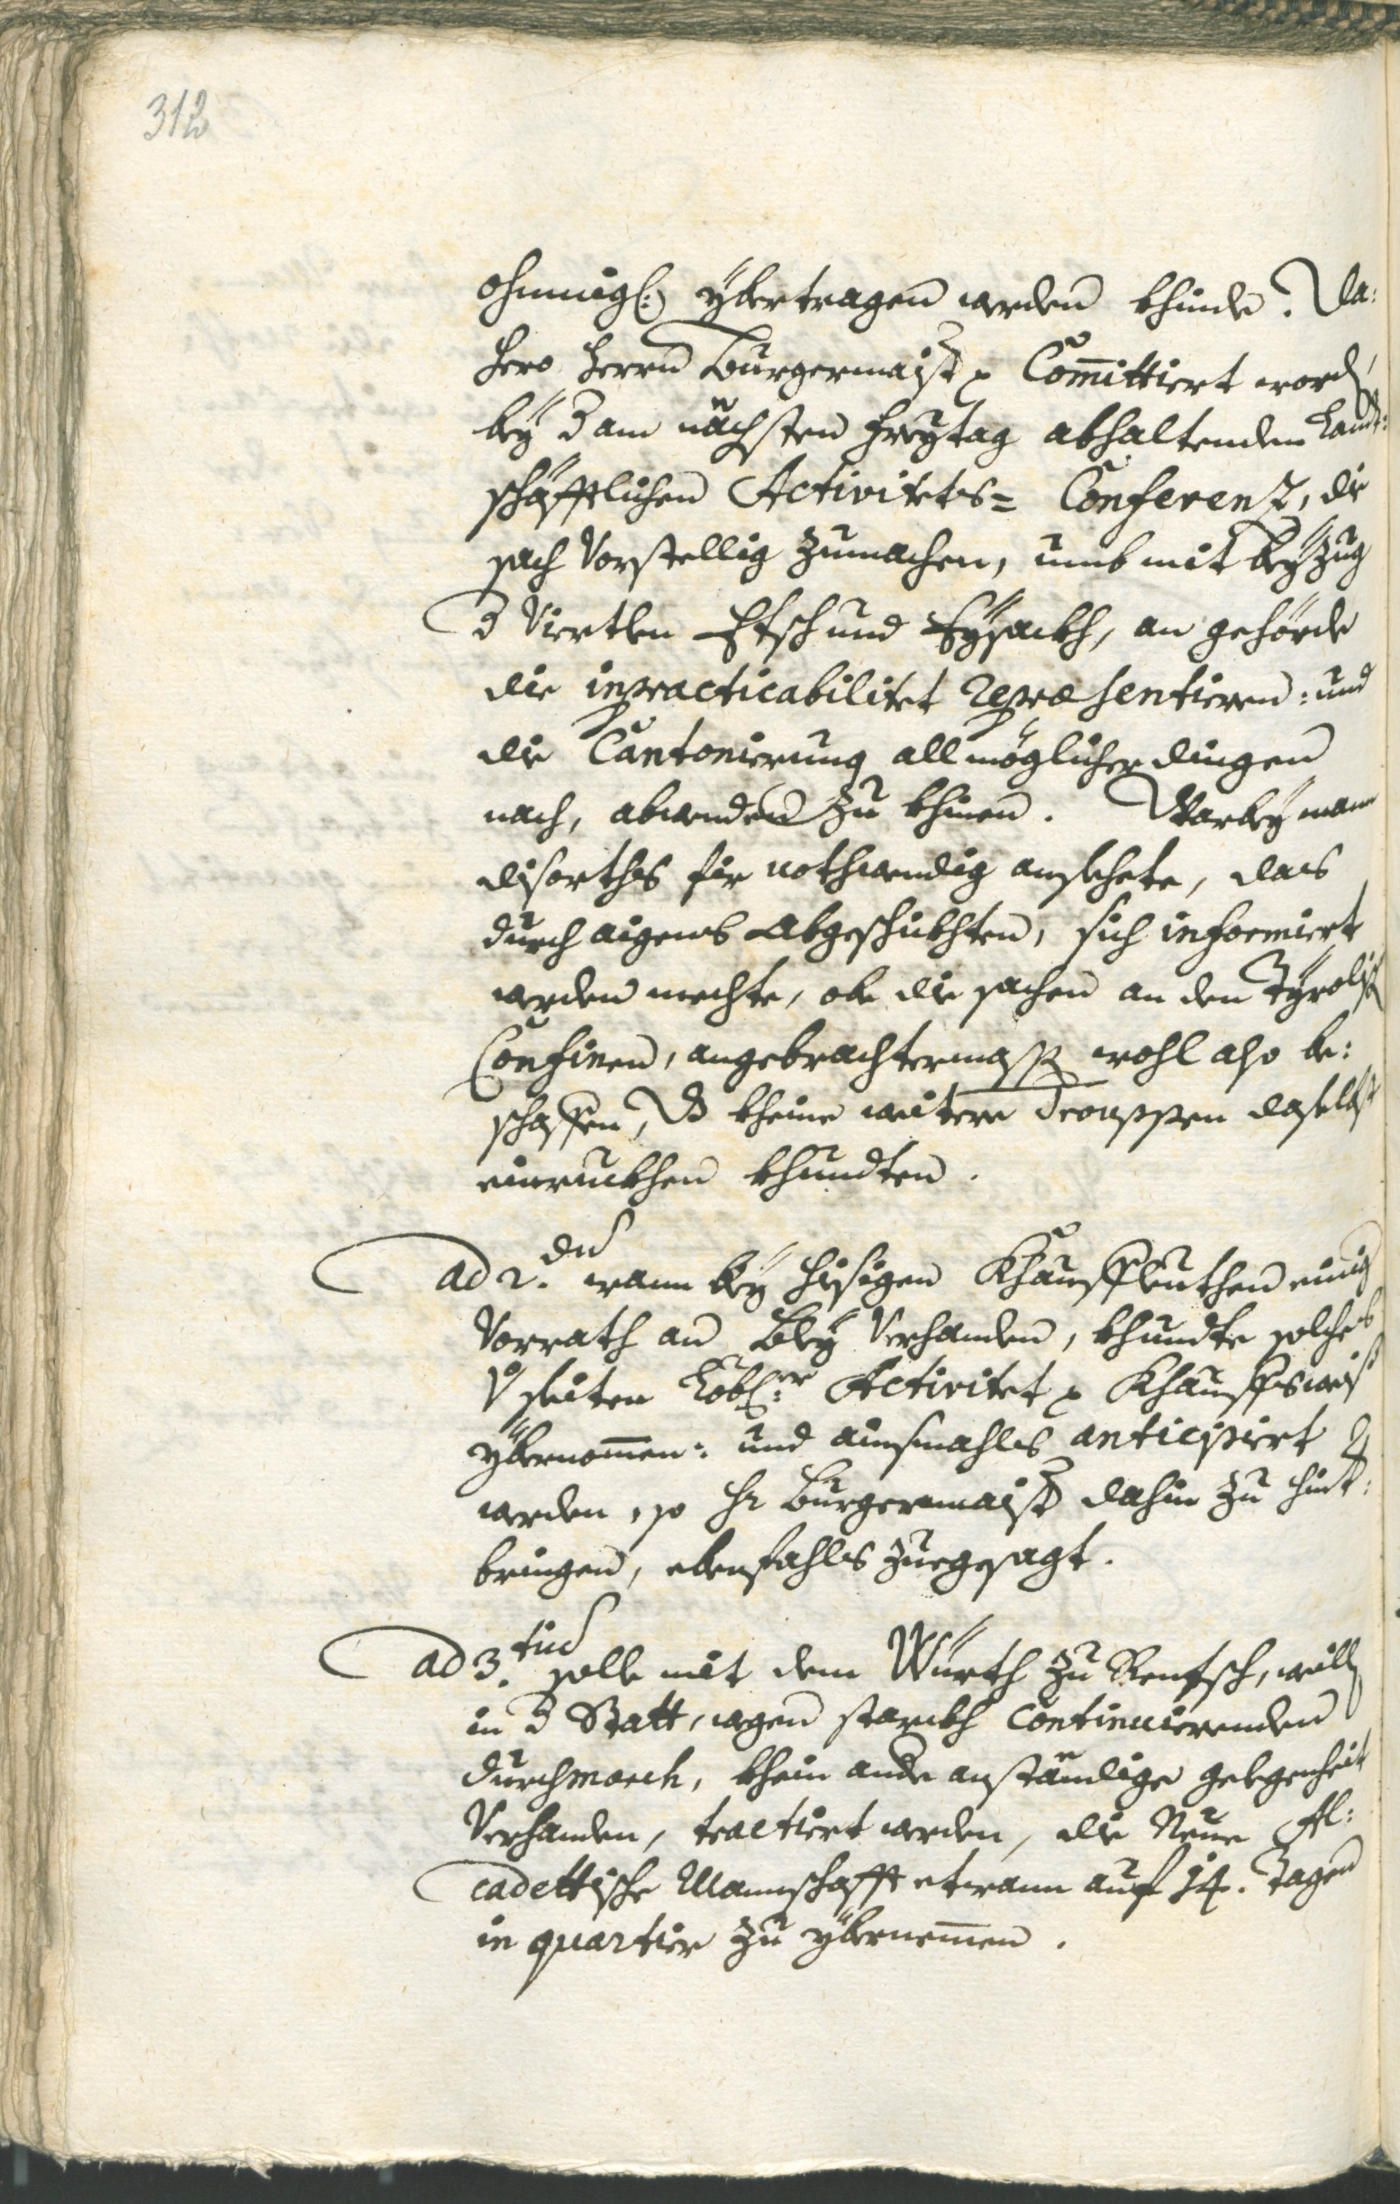 312
ohnmigl: ybertragen werden khinde. Da:
hero Herrn Burgermaister Committiert word,
bey der am nächsten Freytag abhaltenden Landt:
schäfftlichen Activitets= Conferenz, die
sach Vorstellig zumachen, umb mit beyzug
der Viertlen Etsch und Eysackh, an gehörde
die inpracticabilitet repræsentieren: und
die Cantonierung all möglicher dingen
nach, abwenden zu khinen. Warbey man
disorths für nothwendig ansehete, das
durch aigens Abgeschikhten, sich informiert
werden mechte, ob die sachen an den Tyrolisch
Confinen, angebrachtermassen wohl also be:
schaffen, das kheine weitere Trouppen daselbst
einruckhen khundten.
ad 2.do wann bey hisigen Khauffleuthen einig
Vorrath an Bley Verhanden, khundte solches
von seiten Löbl:er Activitet Khauffsweis
ybernomen: und ainsmahls anticipiert
werden, so Hr Burgermaister dahin zu hint:
bringen, ebenfahls zuegesagt.
ad 3.tio solle mit dem Würth zu Rentsch, weill
in der Statt, wegen starckh continuierenden
durchmarch, khein ander anständige gelegenheit
Verhanden, tractiert werden, die Neue Al:
cadettische Mannschafft etwann auf 14. Tagen
in quartier zu ybernemen.